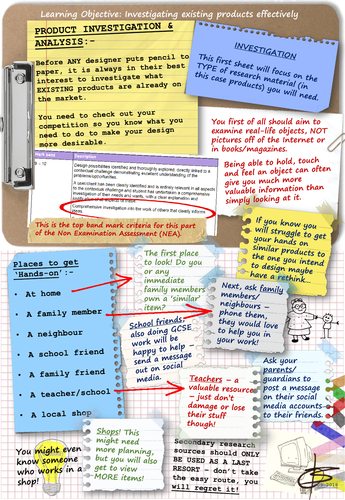 Learning Objective: Investigating existing products effectively
PRODUCT INVESTIGATION &
ANALYSIS:-
Before ANY designer puts pencil to
paper, it is always in their best
interest to investigate what
EXISTING products are already on
the market.
You need to check out your
competition so you know what you
need to do to make your design
more desirable.
INVESTIGATION
This first sheet will focus on the
TYPE of research material (in
this case products) you will need.
You first of all should aim to
examine real-life objects, NOT
pictures off of the Internet or
in books/magazines.
Being able to hold, touch
and feel an object can often
give you much more
valuable information than
simply looking at it.
Mark band
Description
9 - 10
Design possibilities identified and thoroughly explored, directly linked to a
contextual challenge demonstrating excellent understanding of the
problems/opportunities.
A user/client has been clearly identified and is entirely relevant in all aspects
to the contextual challenge and student has undertaken a comprehensive
investigation of their needs and wants, with a clear explanation and
justification of all aspects of these.
Comprehensive investigation into the work of others that clearly informs
ideas.
This is the top band mark criteria for this
part of the Non Examination Assessment (NEA).
If you know you
will struggle to get
your hands on
similar products to
the one you intend
to design maybe
have a rethink...
Places to get
'Hands-on':-
• At home
• A family member
• A neighbour
• A school friend
• A family friend
• A teacher/school
• A local shop
The first place
to look! Do you
or any
immediate
family members
own a 'similar'
item?
Next, ask family
members/
neighbours -
phone them,
they would love
to help you in
your work!
School friends,
also doing GCSE
work will be
happy to help -
send a message
out on social
media.
Teachers - a
valuable resource
- just don't
damage or lose
their stuff
though!
Ask your
parents/
guardians to
post a message
on their social
media accounts
to their friends.
You might even
know someone
who works in a
shop!
Shops! This
might need
more planning,
but you will also
get to view
MORE items!
Secondary research
sources should ONLY
BE USED AS A LAST
RESORT - don't take
the easy route, you
will regret it!